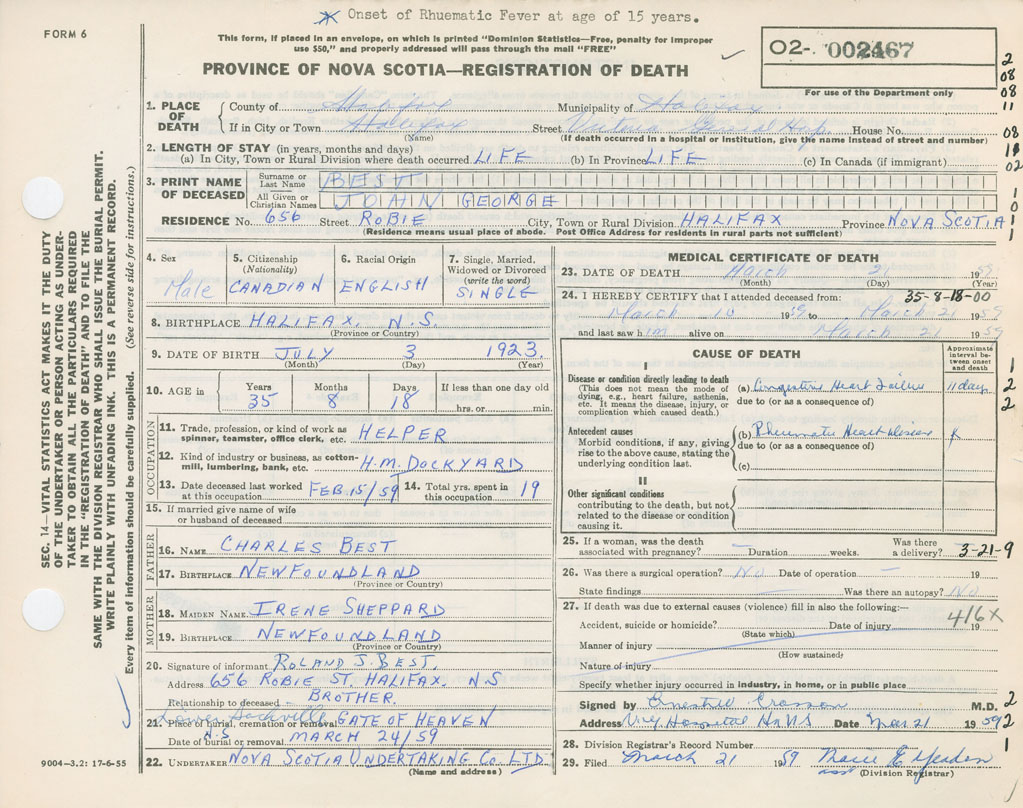 * Onset of Rhuematic Fever at age of 15 years.
FORM 6
This form, if placed in an envelope, on which is printed "Dominion Statistics—Free, penalty for improper
use $50," and properly addressed will pass through the mail "FREE"
O2-. 002467
For use of the Department only
PROVINCE OF NOVA SCOTIA—REGISTRATION OF DEATH
2
08
08
11
08
11
02
1
0
1
1
1. PLACE OF DEATH { County of Halifax Municipality of Halifax
If in City or Town Halifax Street Victoria General Hosp. House No.
(Name) (If death occurred in a hospital or institution, give the name instead of street and number)
2. LENGTH OF STAY (in years, months and days)
(a) In City, Town or Rural Division where death occurred LIFE (b) In Province LIFE (c) In Canada (if immigrant)
3. PRINT NAME OF DECEASED
Surname or Last Name BEST
All Given or Christian Names JOHN GEORGE
RESIDENCE No. 656 Street ROBIE City, Town or Rural Division HALIFAX Province NOVA SCOTIA
(Residence means usual place of abode. Post Office Address for residents in rural parts not sufficient)
4. Sex Male
5. Citizenship (Nationality) CANADIAN
6. Racial Origin ENGLISH
7. Single, Married, Widowed or Divorced (write the word) SINGLE
8. BIRTHPLACE HALIFAX, N.S.
(Province or Country)
9. DATE OF BIRTH JULY 3 1923.
(Month) (Day) (Year)
10. AGE in Years 35 Months 8 Days 18 If less than one day old
hrs. or min.
OCCUPATION
11. Trade, profession, or kind of work as
spinner, teamster, office clerk, etc. HELPER
12. Kind of industry or business, as cotton-
mill, lumbering, bank, etc. H.M. DOCKYARD
13. Date deceased last worked at this occupation FEB 15/59
14. Total yrs. spent in this occupation 19
15. If married give name of wife
or husband of deceased
FATHER
16. NAME CHARLES BEST
17. BIRTHPLACE NEWFOUNDLAND
(Province or Country)
MOTHER
18. MAIDEN NAME IRENE SHEPPARD
19. BIRTHPLACE NEWFOUNDLAND
(Province or Country)
20. Signature of informant ROLAND J. BEST.
Address 656 ROBIE ST. HALIFAX. N.S
Relationship to deceased BROTHER.
Lower Sackville
21. Place of burial, cremation or removal GATE OF HEAVEN
N.S
Date of burial or removal MARCH 24/59
22. UNDERTAKER NOVA SCOTIA UNDERTAKING CO. LTD.
(Name and address)
9004—3.2: 17-6-55
SEC. 14—VITAL STATISTICS ACT MAKES IT THE DUTY
OF THE UNDERTAKER OR PERSON ACTING AS UNDER-
TAKER TO OBTAIN ALL THE PARTICULARS REQUIRED
IN THE "REGISTRATION OF DEATH" AND TO FILE THE
SAME WITH THE DIVISION REGISTRAR WHO SHALL ISSUE THE BURIAL PERMIT.
WRITE PLAINLY WITH UNFADING INK. THIS IS A PERMANENT RECORD.
Every item of information should be carefully supplied. (See reverse side for instructions.)
MEDICAL CERTIFICATE OF DEATH
23. DATE OF DEATH March 21 1959
(Month) (Day) (Year)
24. I HEREBY CERTIFY that I attended deceased from: 35-8-18-00
March 10 1959 to March 21 1959
and last saw him alive on March 21 1959
CAUSE OF DEATH
Approximate interval between onset and death
I
Disease or condition directly leading to death
(This does not mean the mode of
dying, e.g., heart failure, asthenia,
etc. It means the disease, injury, or
complication which caused death.)
(a) Congestive Heart Failure 11 days
due to (or as a consequence of)
Antecedent causes
Morbid conditions, if any, giving
rise to the above cause, stating the
underlying condition last.
(b) Rheumatic Heart Disease *
due to (or as a consequence of)
(c)
II
Other significant conditions
contributing to the death, but not
related to the disease or condition
causing it.
1
2
2
25. If a woman, was the death
associated with pregnancy? — Duration weeks. Was there a delivery? 3-21-9
26. Was there a surgical operation? No Date of operation — 19
State findings — Was there an autopsy? No
27. If death was due to external causes (violence) fill in also the following:— 416X
Accident, suicide or homicide? Date of injury 19
(State which)
Manner of injury
(How sustained)
Nature of injury
Specify whether injury occurred in industry, in home, or in public place
Signed by M.D. 2
Address Vic. Hospital Hx NS Date Mar 21 1959 2
28. Division Registrar's Record Number 1
29. Filed March 21 1959 Marie E Yeadon
asst (Division Registrar)